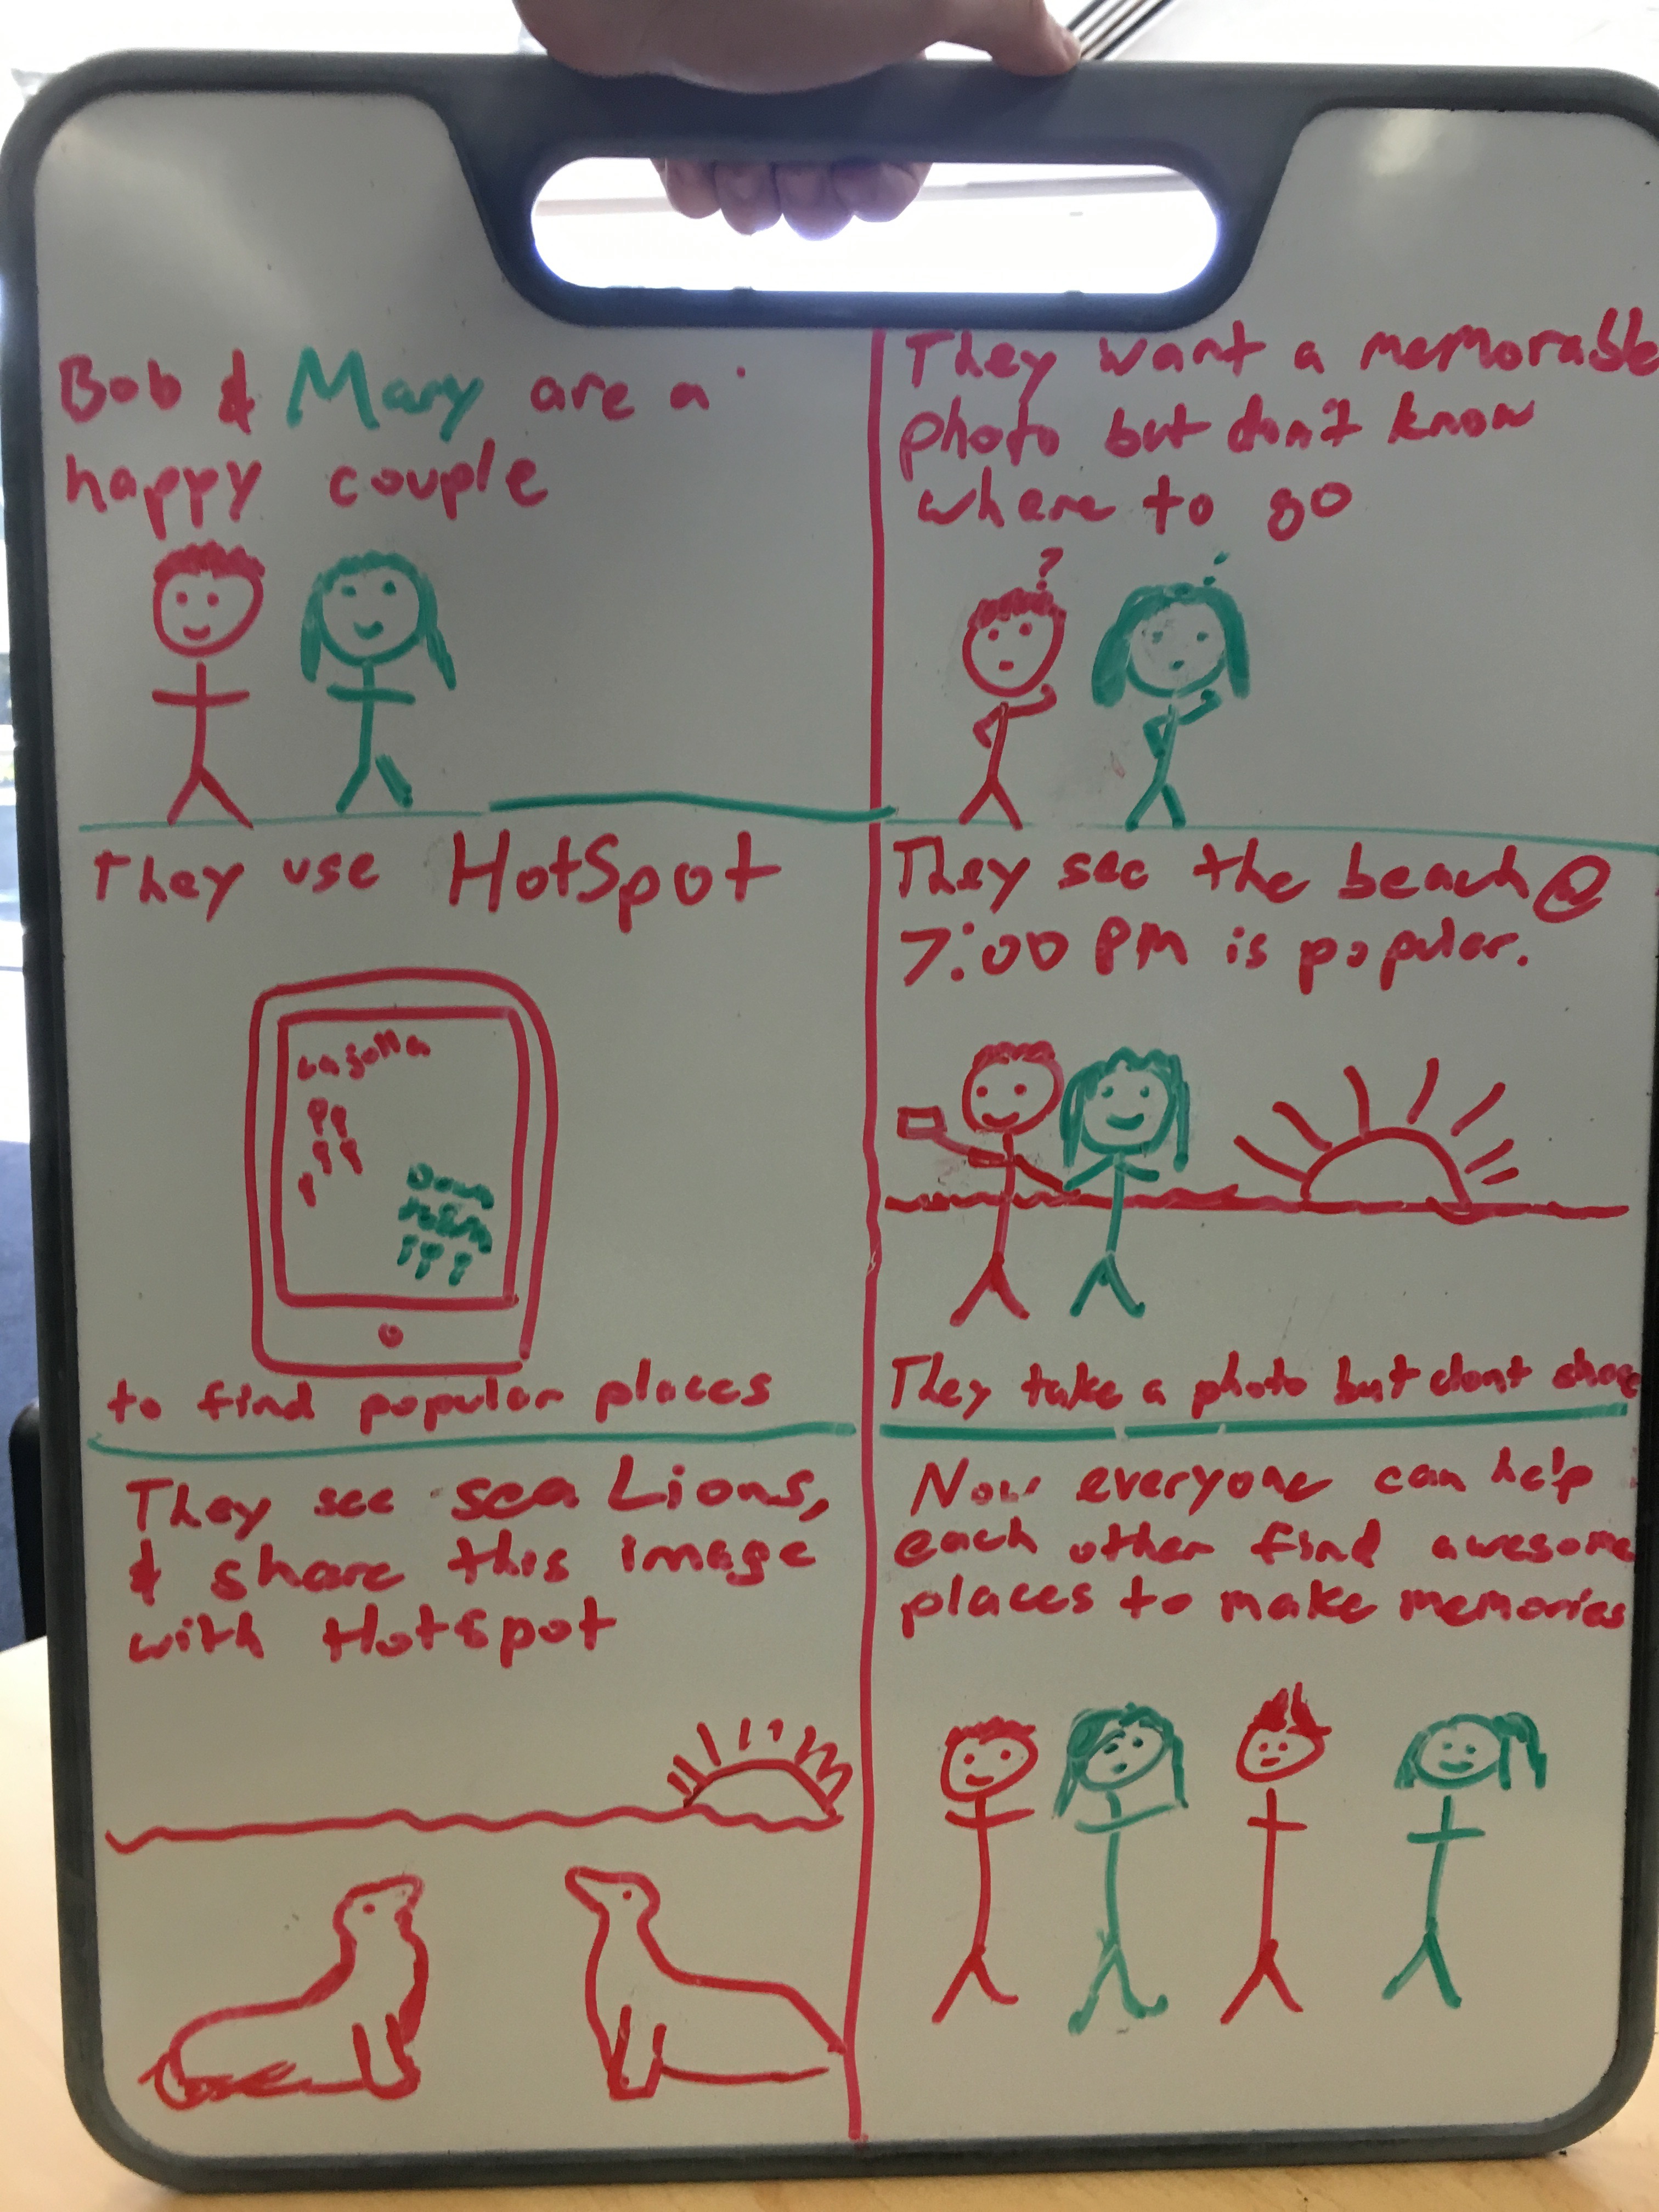 Bob & Mary are a
happy couple
They want a memorable
photo but don't know
where to go
?
?
They use HotSpot
La Jolla
Down
town
to find popular places
They see the beach @
7:00 PM is popular.
They take a photo but dont share
They see sea Lions,
& share this image
with HotSpot
Now everyone can help
each other find awesome
places to make memories